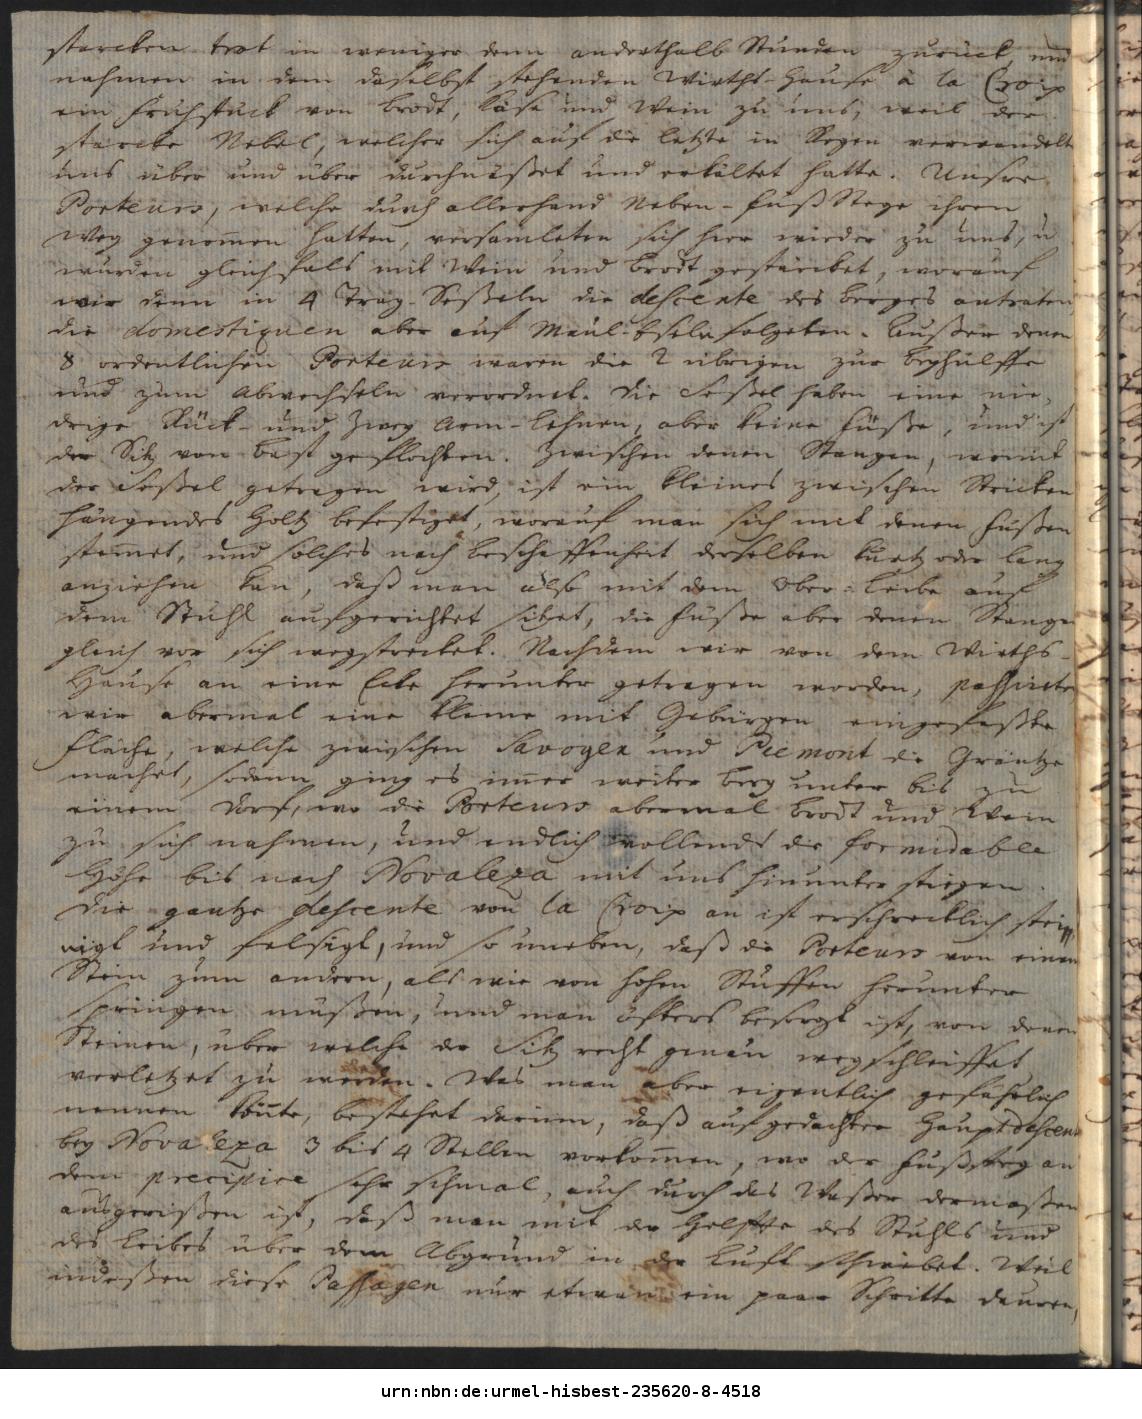 starcken trot in weniger denn anderthalb Stunden zurück, und
nahmen in dem daselbst stehenden Wirths-Hause à la Croix
ein Frühstück von Brodt, Käse und Wein zu uns, weil der
starcke Nebel, welcher sich auf die letzte in Regen verwandelt
uns über und über durchnäßet und erkältet hatte. Unsre
Porteurs, welche durch allerhand Neben-Fuß Stege ihren
Weg genom̄en hatten, versamleten sich hier wieder zu uns, u
wurden gleichfals mit Wein und Brodt gestärcket, worauf
wir denn in 4 Trag-Seßeln die descente des Berges antraten,
die domestiquen aber auf Maul-Eseln folgeten. Außer denen
8 ordentlichen Porteurs waren die 2 übrigen zur Beyhülffe
und zum Abwechseln verordnet. Die Seßel haben eine nie-
drige Rück- und zwey Arm-Lehnen, aber keine Füße, und ist
der Sitz von Bast geflochten. Zwischen denen Stangen, womit
der Seßel getragen wird, ist ein kleines zwischen Stricken
hängendes Holtz befestiget, worauf man sich mit denen Füßen
stem̄et, und solches nach Beschaffenheit derselben kurtz oder lang
anziehen kan, daß man also mit dem Ober-Leibe auf
dem Stuhl aufgerichtet sitzet, die Füße aber denen Stangen
gleich vor sich wegstrecket. Nachdem wir von dem Wirths-
Hause an eine Ecke herunter getragen worden, passirten
wir abermal eine kleine mit Gebürgen eingefaßte
Fläche, welche zwischen Savoyen und Piemont die Gräntze
machet, sodann ging es im̄er weiter berg unter bis zu
einem Dorf, wo die Porteurs abermal Brodt und Wein
zu sich nahmen, und endlich vollends die formidable
Höhe bis nach Novaleza mit uns hinunter stiegen.
Die gantze descente von la Croix an ist erschrecklich stei-
nigt und felsigt, und so uneben, daß die Porteurs von einem
Stein zum andern, als wie von hohen Stuffen herunter
springen müßen, und man öfters besorgt ist, von denen
Steinen, über welche der Sitz recht genau wegschleiffet
verletzet zu werden. Was man aber eigentlich gefährlich
nennen kön̄te, bestehet darinn, daß auf gedachter Haupt descente
bey Novaleza 3 bis 4 Stellen vorkom̄en, wo der Fußsteg an
dem precipice sehr schmal, auch durch das Waßer dermaßen
ausgerißen ist, daß man mit der Helffte des Stuhls und
des Leibes über dem Abgrund in der Luft schwebet. Weil
indeßen diese Passagen nur etwan ein paar Schritte dauren,
urn:nbn:de:urmel-hisbest-235620-8-4518